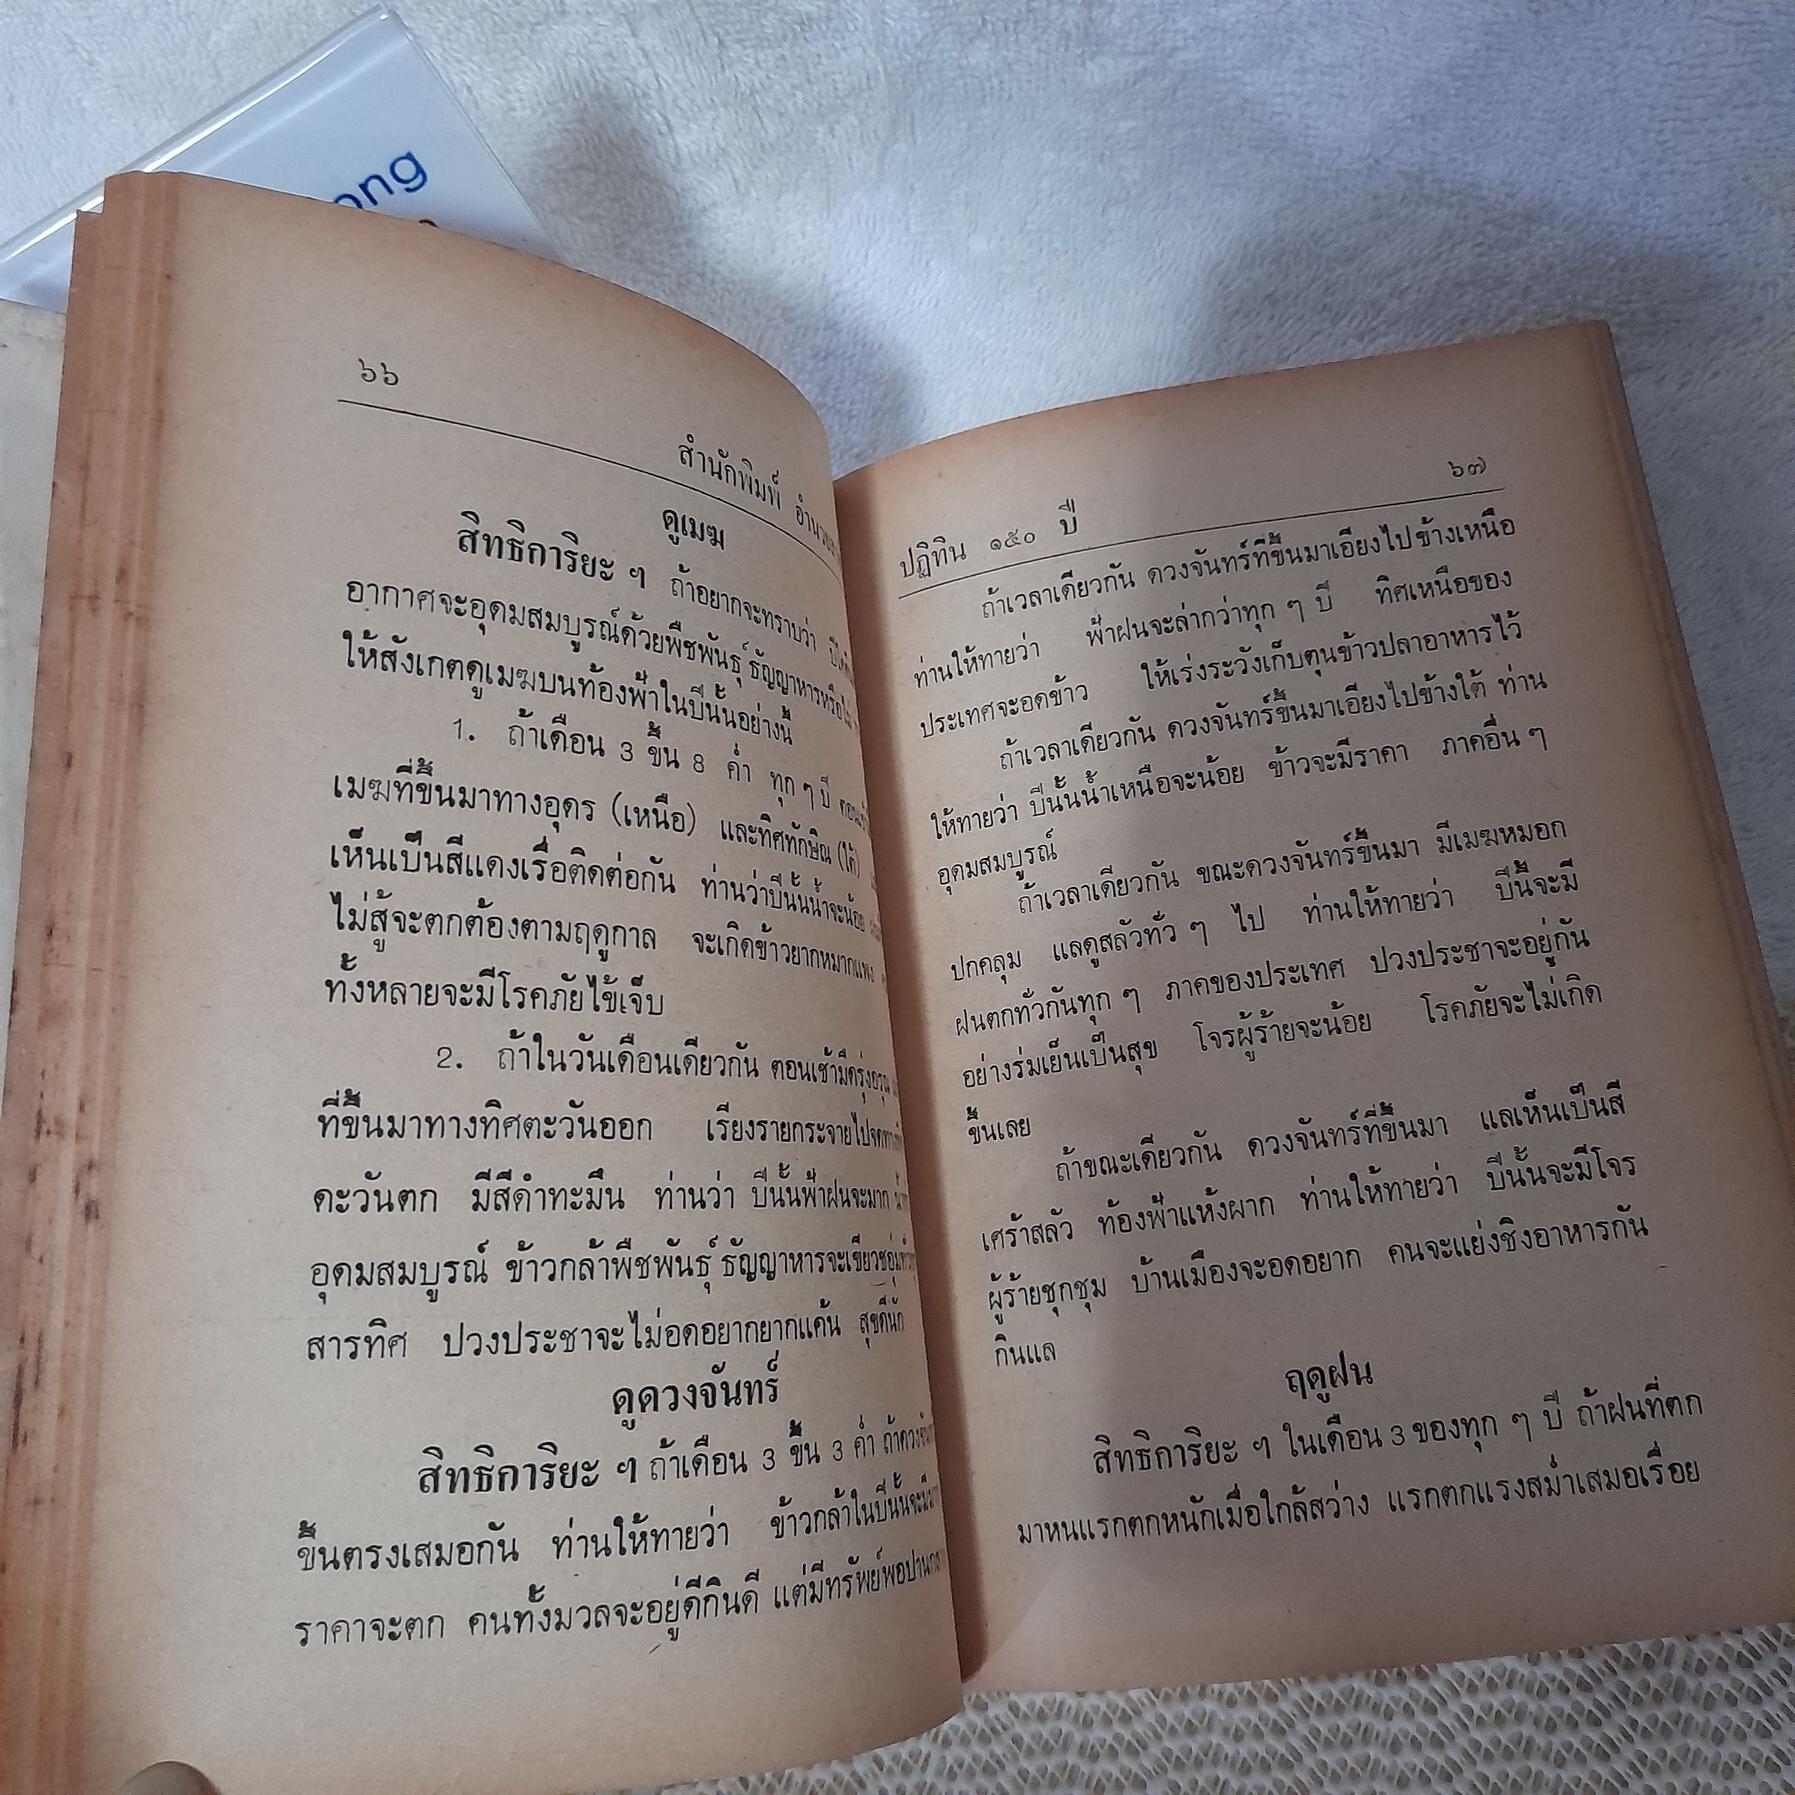 ong
๖๖
สำนักพิมพ์
ดูเมฆ
สิทธิการิยะ ฯ ถ้าอยากจะทราบว่า
อากาศจะอุดมสมบูรณ์ด้วยพืชพันธุ์ ธัญญาหารหรือไม่
ให้สังเกตดูเมฆบนท้องฟ้าในปีนั้นอย่างนี้
1. ถ้าเดือน 3 ขึ้น 8 ค่ำ ทุก ๆ ปี
เมฆที่ขึ้นมาทางอุดร (เหนือ) และทิศทักษิณ (ใต้)
เห็นเป็นสีแดงเรื่อติดต่อกัน ท่านว่าปีนั้นน้ำจะน้อย
ไม่สู้จะตกต้องตามฤดูกาล จะเกิดข้าวยากหมากแพง
ทั้งหลายจะมีโรคภัยไข้เจ็บ
2. ถ้าในวันเดือนเดียวกัน ตอนเช้ามืดรุ่งอรุณ
ที่ขึ้นมาทางทิศตะวันออก เรียงรายกระจายไปจด
ตะวันตก มีสีดำทะมึน ท่านว่า ปีนั้นฟ้าฝนจะมาก
อุดมสมบูรณ์ ข้าวกล้าพืชพันธุ์ ธัญญาหารจะเขียวชอุ่ม
สารทิศ ปวงประชาจะไม่อดอยากยากแค้น สุขดีนัก
ดูดวงจันทร์
สิทธิการิยะ ฯ ถ้าเดือน 3 ขึ้น 3 ค่ำ
ขึ้นตรงเสมอกัน ท่านให้ทายว่า ข้าวกล้าในปีนั้นจะมี
ราคาจะตก คนทั้งมวลจะอยู่ดีกินดี แต่มีทรัพย์พอปาน
ปฏิทิน ๑๕๐ ปี ๖๗
ถ้าเวลาเดียวกัน ดวงจันทร์ที่ขึ้นมาเอียงไปข้างเหนือ
ท่านให้ทายว่า ฟ้าฝนจะล่ากว่าทุก ๆ ปี ทิศเหนือของ
ประเทศจะอดข้าว ให้เร่งระวังเก็บตุนข้าวปลาอาหารไว้
ถ้าเวลาเดียวกัน ดวงจันทร์ขึ้นมาเอียงไปข้างใต้ ท่าน
ให้ทายว่า ปีนั้นน้ำเหนือจะน้อย ข้าวจะมีราคา ภาคอื่น ๆ
อุดมสมบูรณ์
ถ้าเวลาเดียวกัน ขณะดวงจันทร์ขึ้นมา มีเมฆหมอก
ปกคลุม แลดูสลัวทั่ว ๆ ไป ท่านให้ทายว่า ปีนี้จะมี
ฝนตกทั่วกันทุก ๆ ภาคของประเทศ ปวงประชาจะอยู่กัน
อย่างร่มเย็นเป็นสุข โจรผู้ร้ายจะน้อย โรคภัยจะไม่เกิด
ขึ้นเลย
ถ้าขณะเดียวกัน ดวงจันทร์ที่ขึ้นมา แลเห็นเป็นสี
เศร้าสลัว ท้องฟ้าแห้งผาก ท่านให้ทายว่า ปีนั้นจะมีโจร
ผู้ร้ายชุกชุม บ้านเมืองจะอดอยาก คนจะแย่งชิงอาหารกัน
กินแล
ฤดูฝน
สิทธิการิยะ ฯ ในเดือน 3 ของทุก ๆ ปี ถ้าฝนที่ตก
มาหนแรกตกหนักเมื่อใกล้สว่าง แรกตกแรงสม่ำเสมอเรื่อย